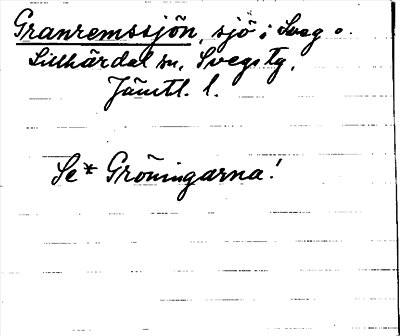 Granremssjön, sjö i Sveg o.
Lillhärdal sn, Svegs tg,
Jämtl. l.
Se* Gröningarna!